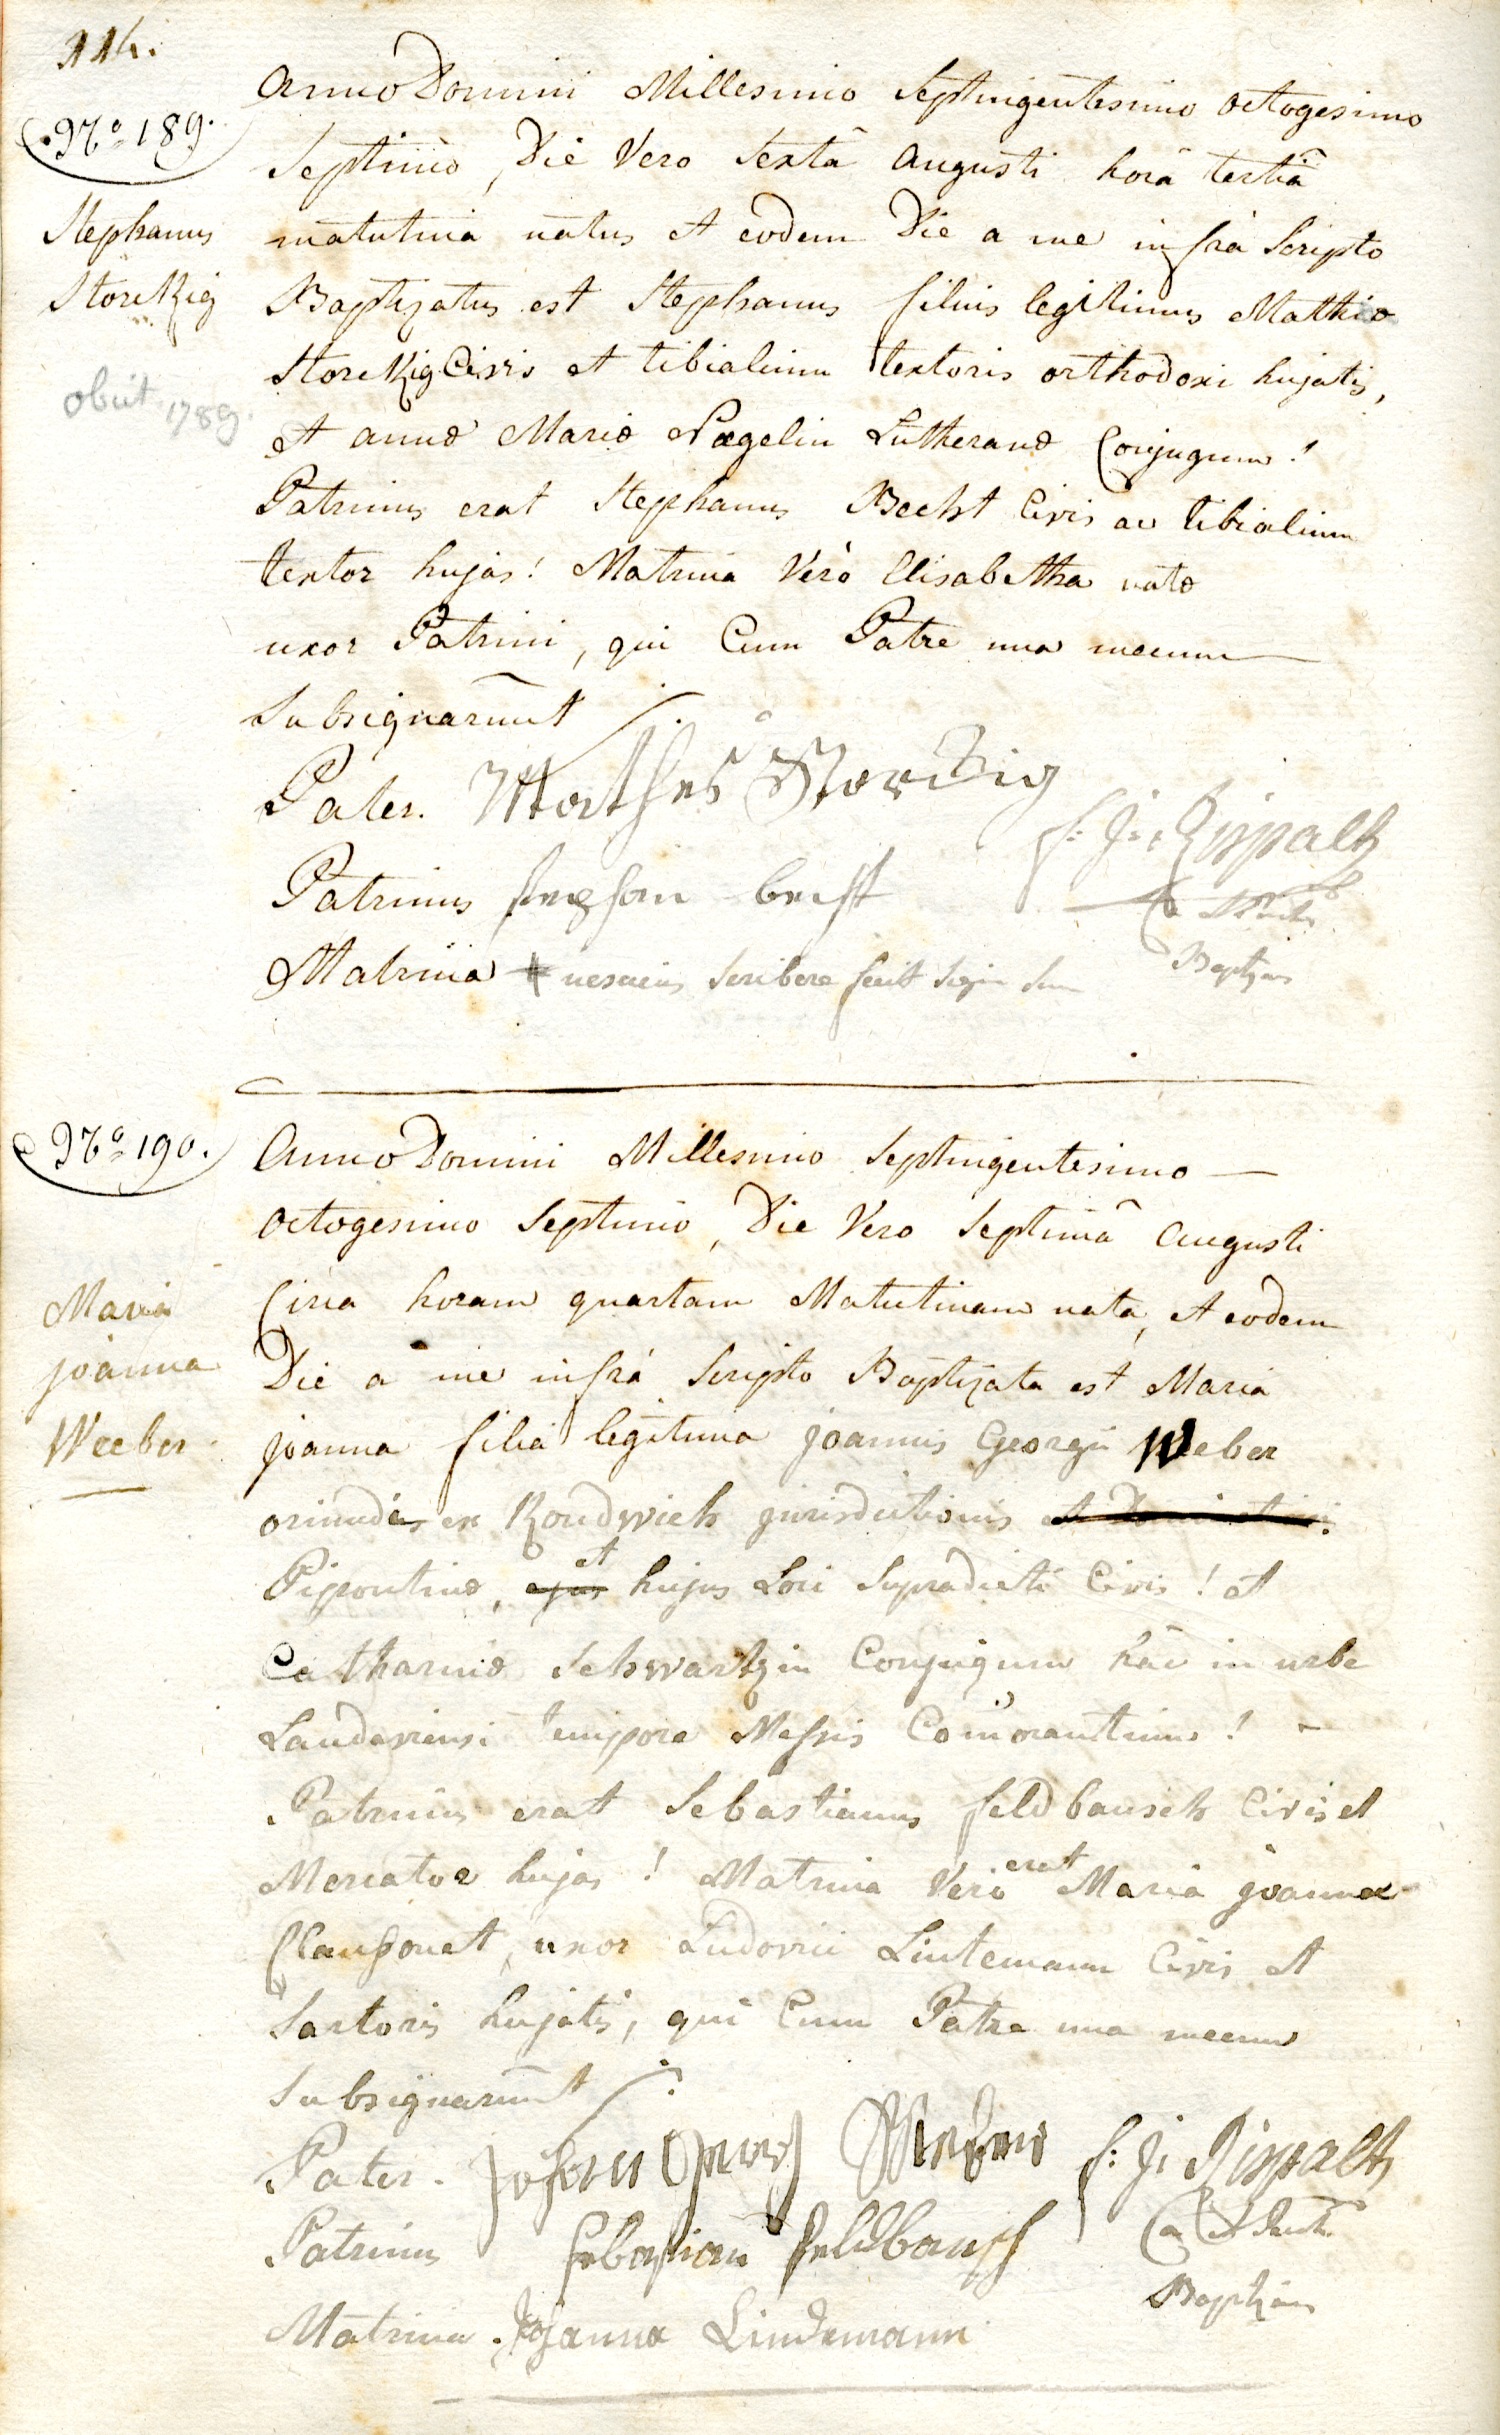 114.
No 189.
Stephanus
Storckzig
obiit 1789.
Anno Domini Millesimo Septingentesimo octogesimo
Septimo, Die Vero Sexta Augusti horâ tertiâ
matutina natus et eodem Die a me infra Scripto
Baptizatus est Stephanus filius legitimus Mathiæ
Storckzig Civis et tibialium textoris orthodoxi hujatis,
et annæ Mariæ Nægelin Lutheranæ Conjugum!
Patrinus erat Stephanus Becht Civis ac tibialium
textor hujas! Matrina Verò Elisabetha
uxor Patrini, qui Cum Patre una mecum
Subsignarunt
Pater. Mathes Storckzig
Patrinus stephan becht
Matrina + nesciens scribere fecit sign sum
Baptizans
No 190.
Maria
joanna
Weeber
Anno Domini Millesimo Septingentesimo
octogesimo Septimo, Die Vero Septimâ Augusti
Circa horam quartam Matutinam nata, et eodem
Die a me infrà Scripto Baptizata est Maria
joanna filia legitima joannis Georgii Weber
oriundus ex Rondwich jurisdictionis
Bipontinæ, et hujus Loci Supradicti Civis! et
Catharinæ Schwartzin Conjugum hâc in urbe
Landaviensi tempore Messis Comorantium!
Patrinus erat Sebastianus feldbausch Civis et
Mercator hujas! Matrina Verò erat Maria joanna
Clausonet, uxor Ludovici Lintemann Civis et
Sartoris hujatis, qui Cum Patre una mecum
Subsignarunt
Pater. Johan Georg Weber
Patrinus Sebastian feldbausch
Matrina. Johanna Lindemann
Baptizans